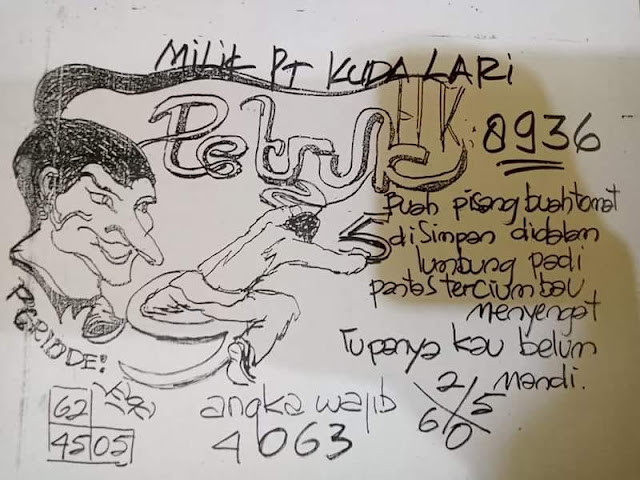 MILIK PT KUDA LARI
Petruk
HK: 8936
buah pisang buah tomat
5
disimpan didalam
lumbung padi
pantas tercium bau
menyengat
Tupanya kau belum
mandi.
PERIODE!
62
45 05
angka wajib
4063
2
6 5
0